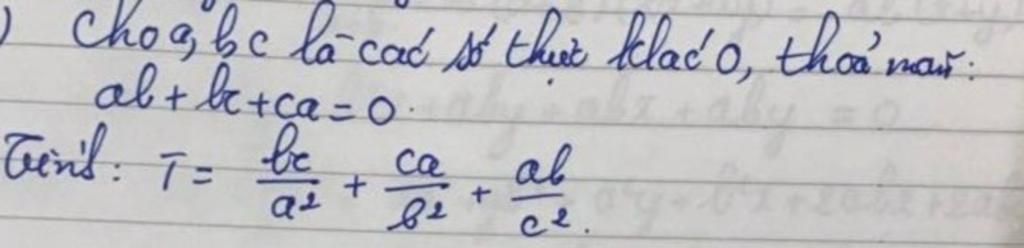 ) Cho a, b c là các số thực khác 0, thoả mãn:
ab + bc + ca = 0.
Tính: T = bc/a² + ca/b² + ab/c².